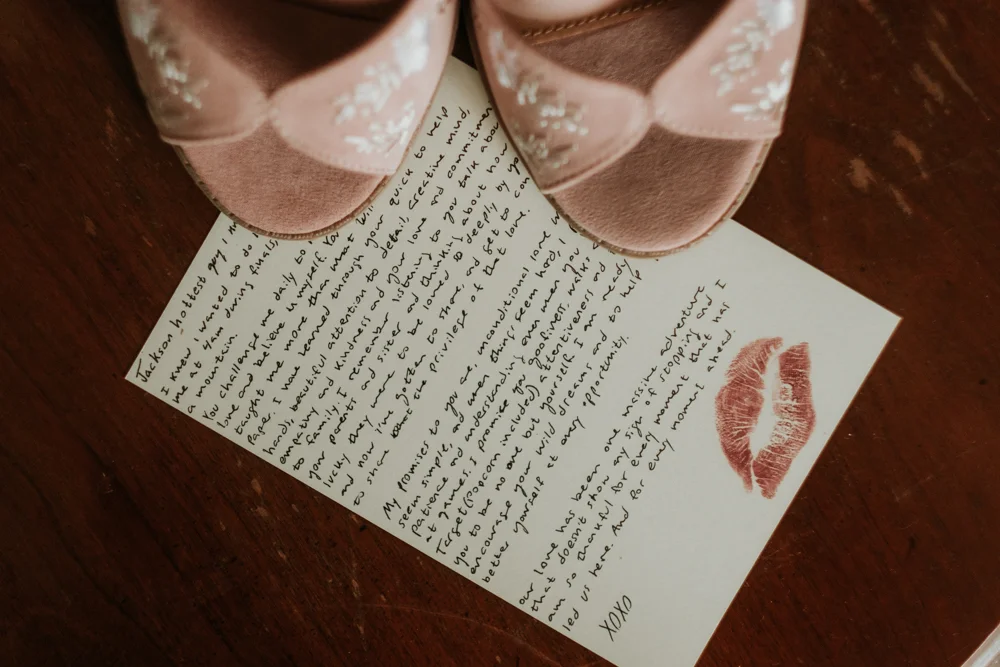 Jackson hottest guy I
I knew I wanted to do
me at 4am during finals,
a mountain.
You challenge me daily to
love and believe in myself. You
taught me more than what
page. I have learned through your quick to help
hands, beautiful attention to detail, creative mind,
empathy and kindness and your love and commitmen
to your family. I remember listening to you talk abou
your parents and sister and thinking about how
lucky they were to be loved so deeply by yo
and now I've gotten to share, and get to con
to share the privilege of that love.
My promises to you are, unconditional love w
seem simple, and when things seem hard, I
patience and understanding even when you
at games. I promise you goofiness, walks
Target (Popcorn included) attentiveness and
you to be no one but yourself. I am ready
encourage your wild dreams and to help
better yourself at every opportunity.
our love has been one massive adventure
that doesn't show any sign of stopping and I
am so thankful for every moment that has
led us here. And for every moment ahead.
XOXO